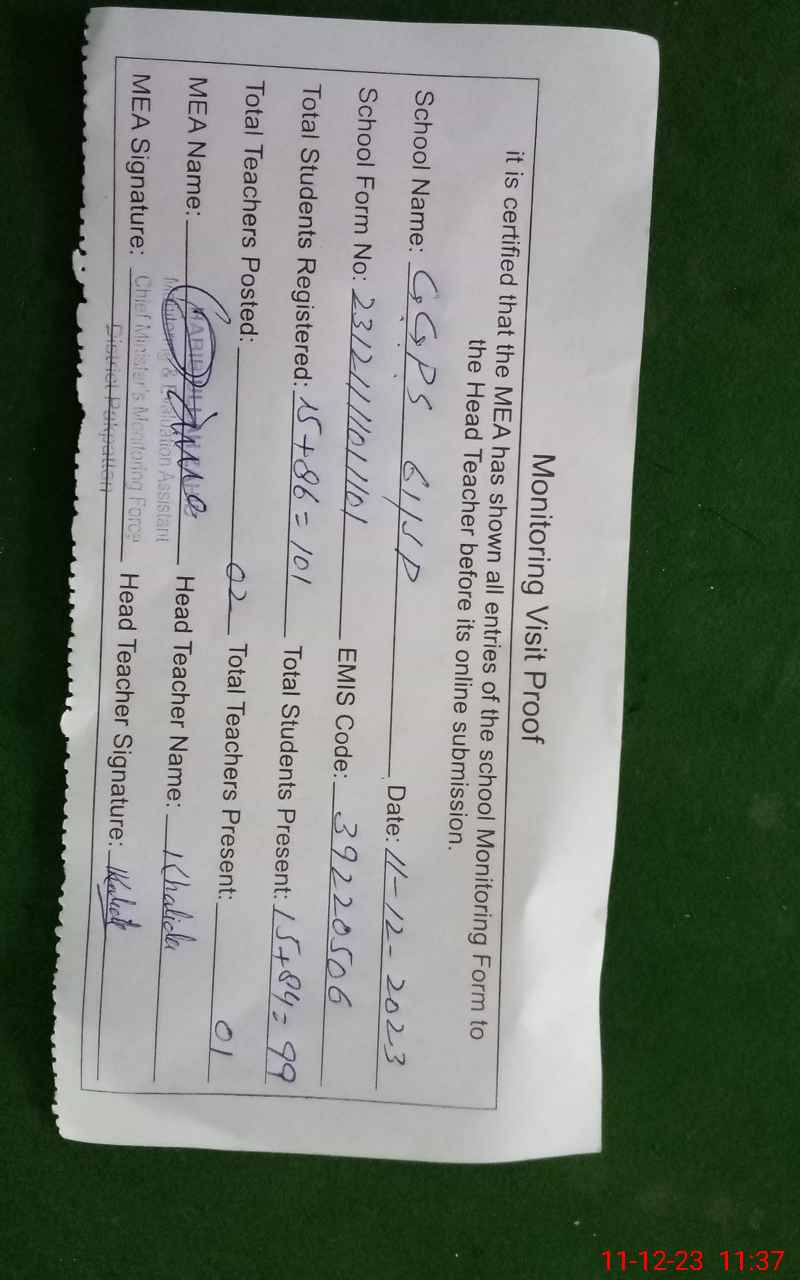 Monitoring Visit Proof
it is certified that the MEA has shown all entries of the school Monitoring Form to
the Head Teacher before its online submission.
School Name: GGPS 61/SP Date: 11-12-2023
School Form No: 23121111011101 EMIS Code: 39220506
Total Students Registered: 15+86=101 Total Students Present: 15+84=99
Total Teachers Posted: 02 Total Teachers Present: 01
MEA Name: Head Teacher Name: Khalida
Monitoring & Evaluation Assistant
MEA Signature: Chief Minister's Monitoring Force Head Teacher Signature:
District Pakpattan
11-12-23 11:37